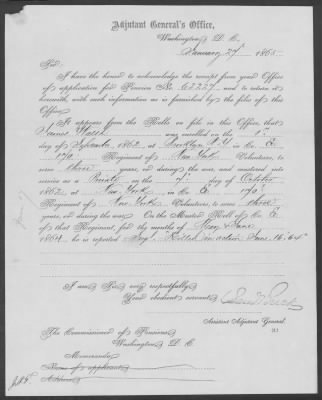 Adjutant General's Office,
Washington D. C.
January 27, 1865
Sir:
I have the honor to acknowledge the receipt from your Office
of application for Pension No. 62227 and to return it
herewith, with such information as is furnished by the files of this
Office.
It appears from the Rolls on file in this Office, that
James was enrolled on the 1st
day of 1862, at Brooklyn N.Y in Co. E
170 Regiment of New York Volunteers, to
serve three years, or during the war, and mustered into
service as a Private on the 7 day of October
1862, at New York, in Co. E 170
Regiment of New York Volunteers, to serve three
years, or during the war. On the Muster Roll of Co. E
of that Regiment, for the months of May & June
1864, he is reported Killed in action June 16/64
I am Sir, very respectfully
Your obedient servant,
Assistant Adjutant General.
The Commissioner of Pensions
Washington D. C.
Memoranda
Name of applicant
Address